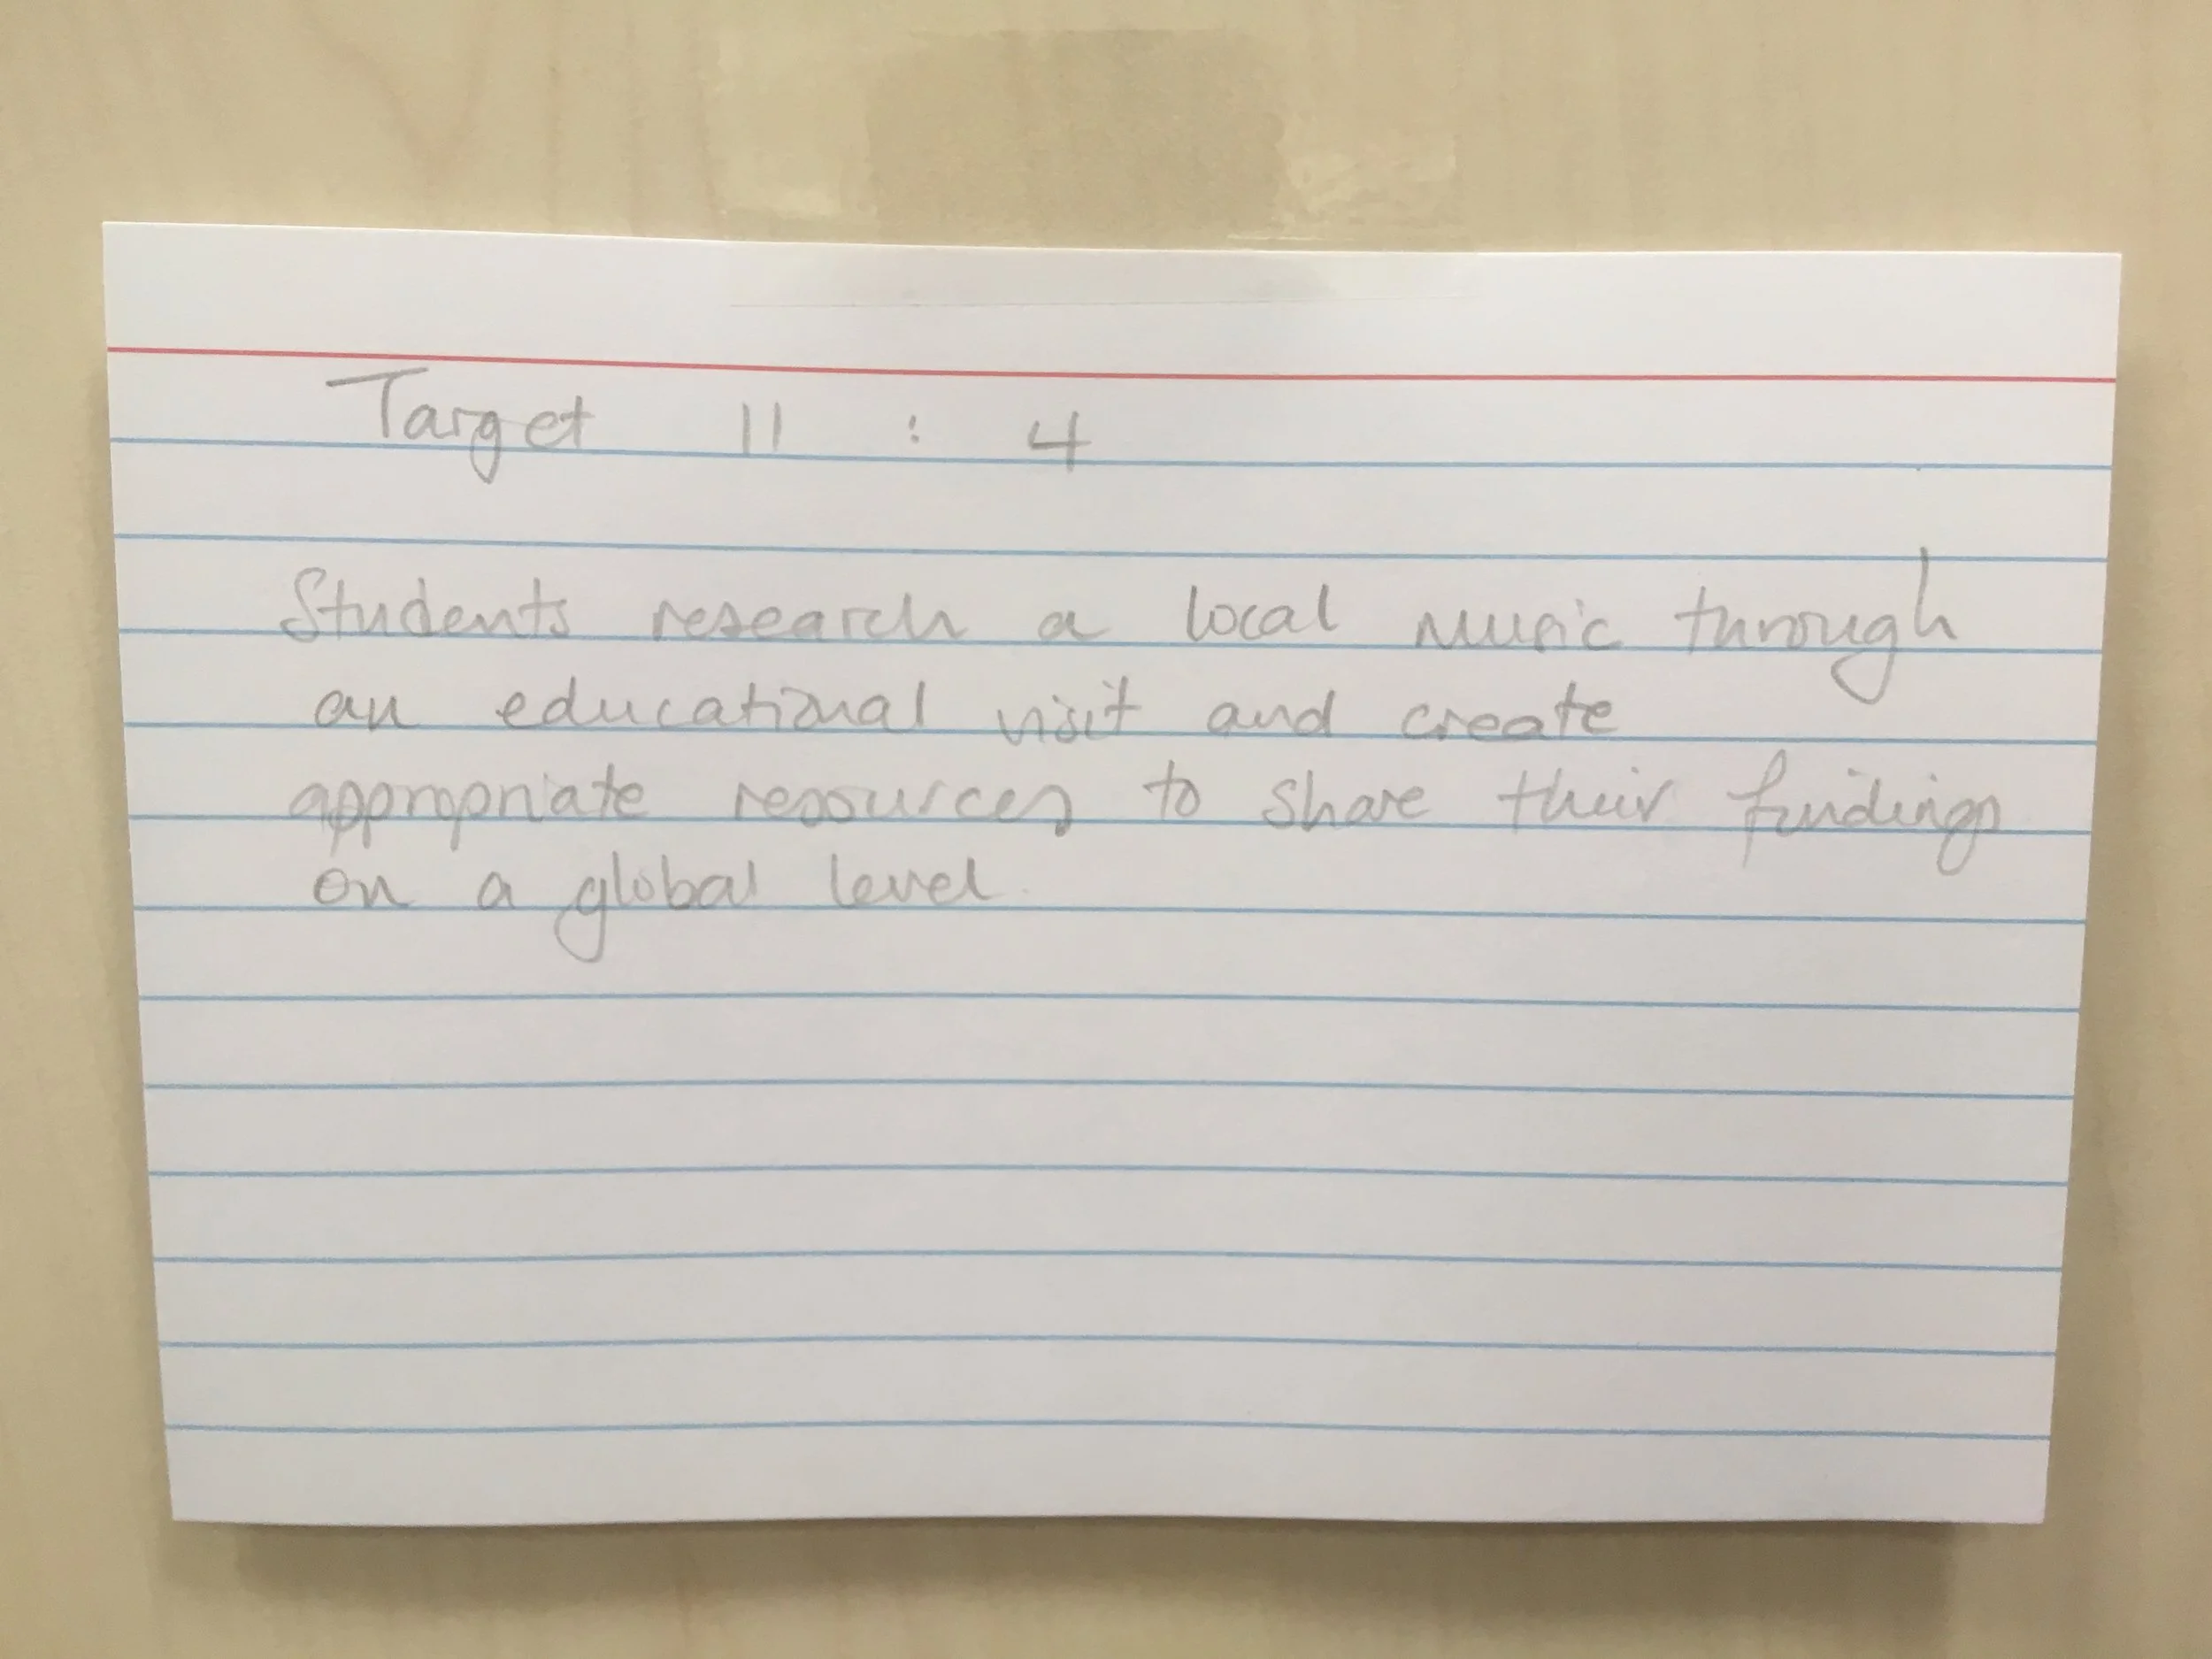 Target 11 : 4
Students research a local music through
an educational visit and create
appropriate resources to share their findings
on a global level.